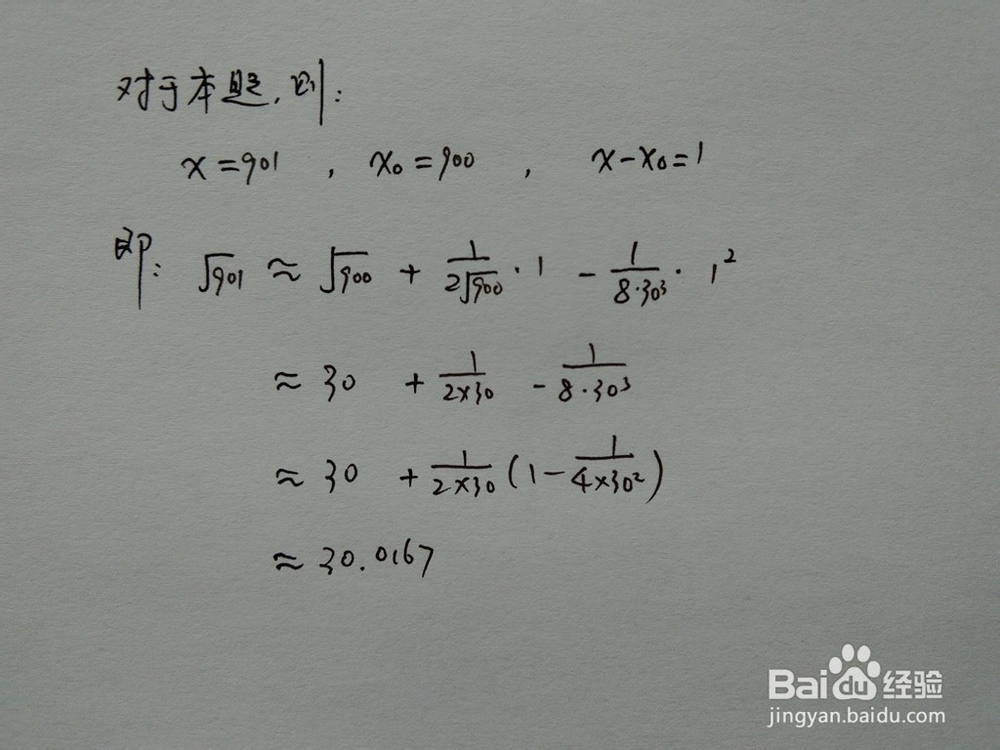 对于本题,则:
x=901 , x₀=900 , x-x₀=1
即: √901 ≈ √900 + 1/(2√900)·1 - 1/(8·30³)·1²
≈ 30 + 1/(2×30) - 1/(8·30³)
≈ 30 + 1/(2×30) (1 - 1/(4×30²))
≈ 30.0167
Baidu经验
jingyan.baidu.com